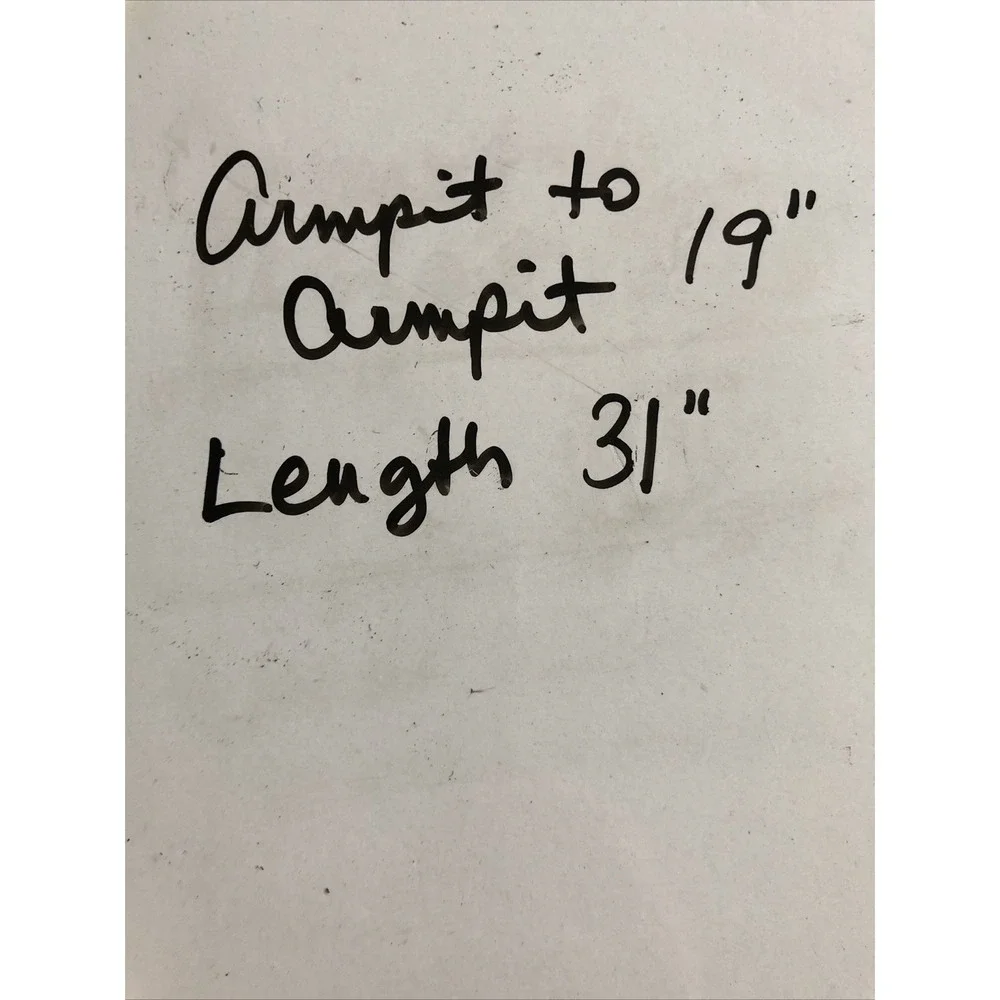 Armpit to
Armpit 19"
Length 31"